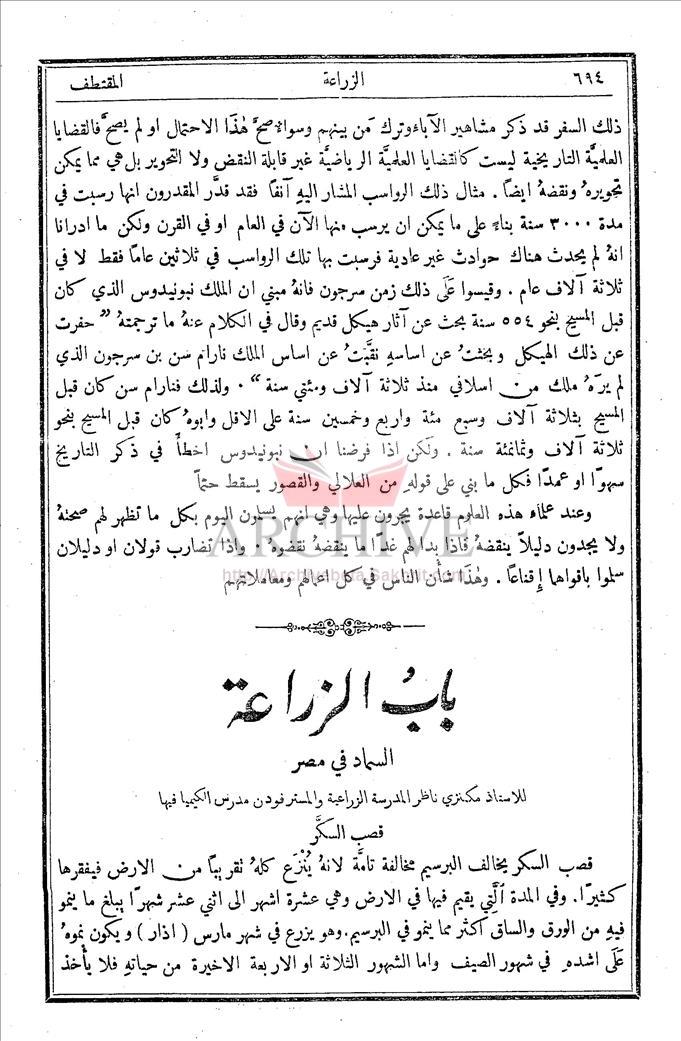 ٦٩٤ الزراعة المقتطف
ذلك السفر قد ذكر مشاهير الآباء وترك مَن بينهم وسوالا صحَّ هٰذا الاحتمال او لم يصحَّ فالقضايا
العلميَّة التاريخية ليست كالقضايا العلميَّة الرياضيَّة غير قابلة النقض ولا التحوير بل هي مما يمكن
تحويرهُ ونقضهُ ايضًا . مثال ذلك الرواسب المشار اليهِ آنفًا فقد قدَّر المقدرون انها رسبت في
مدة ٣٠٠٠ سنة بناءً على ما يمكن ان يرسب منها الآن في العام او في القرن ولكن ما ادرانا
انهُ لم يحدث هناك حوادث غير عادية فرسبت بها تلك الرواسب في ثلاثين عامًا فقط لا في
ثلاثة آلاف عام . وقيسوا عَلَى ذلك زمن سرجون فانهُ مبني ان الملك نبونيدوس الذي كان
قبل المسيح بنحو ٥٥٤ سنة بحث عن آثار هيكل قديم وقال في الكلام عنهُ ما ترجمتهُ ” حفرت
عن ذلك الهيكل وبحثتُ عن اساسهِ نقَّبتُ عن اساس الملك نارام سن بن سرجون الذي
لم يرَهُ ملك من اسلافي منذ ثلاثة آلاف ومئتي سنة “ . ولذلك فنارام سن كان قبل
المسيح بثلاثة آلاف وسبع مئة واربع وخمسين سنة على الاقل وابوهُ كان قبل المسيح بنحو
ثلاثة آلاف وثمانمئة سنة . ولكن اذا فرضنا ان نبونيدوس اخطأَ في ذكر التاريخ
سهوًا او عمدًا فكل ما بني على قولهِ من العلالي والقصور يسقط حتمًا
وعند علماء هذه العلوم قاعدة يجرون عليها وهي انهم يسلمون اليوم بكل ما تظهر لهم صحتهُ
ولا يجدون دليلاً ينقضهُ فاذا بدا لهم غدًا ما ينقضهُ نقضوهُ . واذا تضارب قولان او دليلان
سلموا باقواهما إِقناعًا . وهٰذا شأْن الناس في كل اعمالهم ومعاملاتهم
ARCHIVE
http://Archivebeta.Sakhrit.com
بابُ الزراعة
السماد في مصر
للاستاذ مكنزي ناظر المدرسة الزراعية والمستر فودن مدرس الكيميا فيها
قصب السكَّر
قصب السكر يخالف البرسيم مخالفة تامَّة لانهُ يُنْزَع كلهُ تقريبًا من الارض فيفقرها
كثيرًا. وفي المدة الَّتِي يقيم فيها في الارض وهي عشرة اشهر الى اثني عشر شهرًا يبلغ ما ينمو
فيهِ من الورق والساق اكثر مما ينمو في البرسيم.وهو يزرع في شهر مارس ( اذار ) ويكون نموهُ
عَلَى اشدهِ في شهور الصيف واما الشهور الثلاثة او الاربعة الاخيرة من حياتهِ فلا يأْخذ